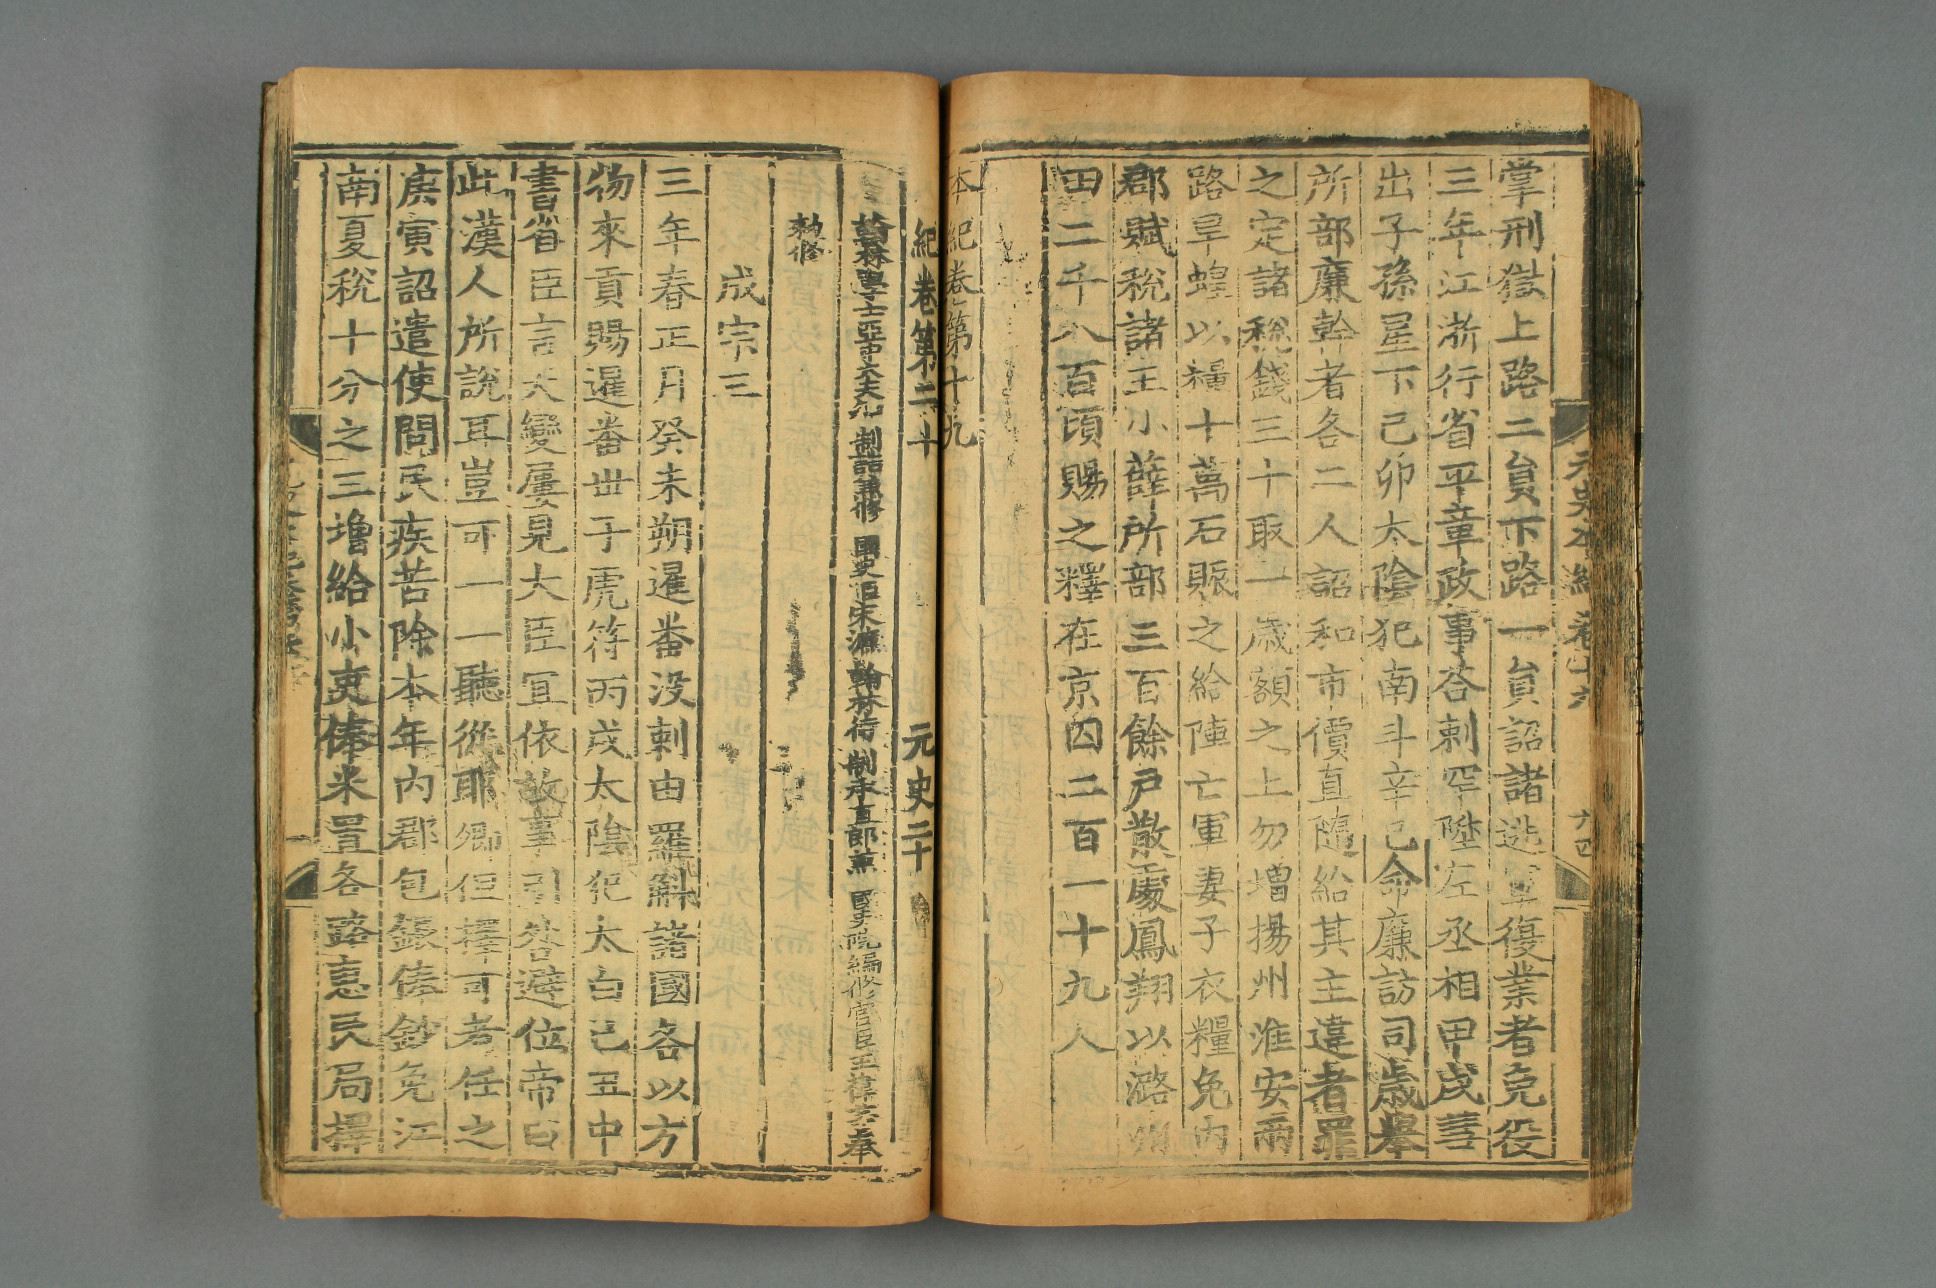 元史本紀卷十九
十四
掌刑獄上路二員下路一員詔諸逃軍復業者免役
三年江浙行省平章政事荅剌罕陞左丞相甲戌彗
出子孫星下己卯太陰犯南斗辛巳命廉訪司歲舉
所部廉幹者各二人詔和市價直隨給其主違者罪
之定諸稅錢三十取一歲額之上勿增揚州淮安兩
路旱蝗以糧十萬石賑之給陣亡軍妻子衣糧免內
郡賦稅諸王小薛所部三百餘戶散處鳳翔以潞州
田二千八百頃賜之釋在京囚二百一十九人
本紀卷第十九
紀卷第二十 元史二十
翰林學士亞中大夫知制誥兼修國史臣宋濂翰林待制承直郎兼國史院編修官臣王禕等奉
勑修
成宗三
三年春正月癸未朔暹番没剌由羅斛諸國各以方
物來貢賜暹番世子虎符丙戌太陰犯太白己丑中
書省臣言天變屢見大臣宜依故事引咎避位帝曰
此漢人所說耳豈可一一聽從耶卿但擇可者任之
庚寅詔遣使問民疾苦除本年內郡包銀俸鈔免江
南夏稅十分之三增給小吏俸米置各路惠民局擇